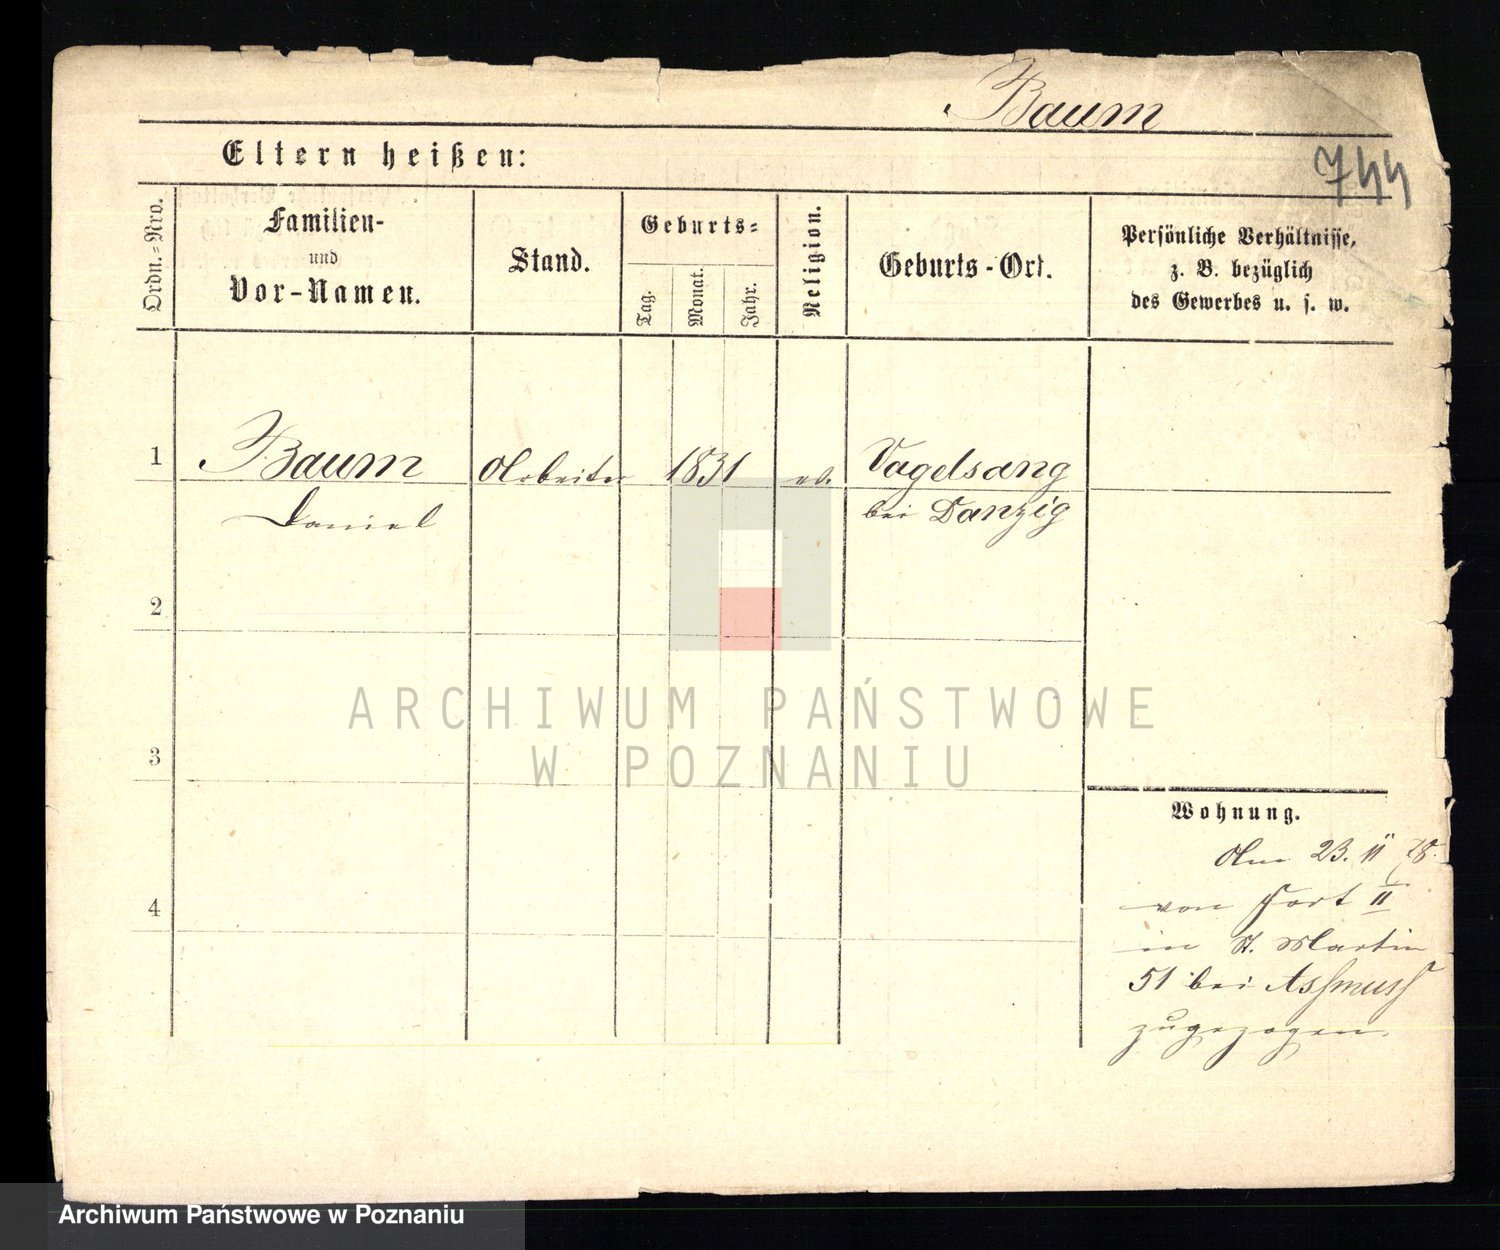 Baum
744
Eltern heißen:
Ordn.-Nro.
Familien-
und
Vor-Namen.
Stand.
Geburts-
Tag.
Monat.
Jahr.
Religion.
Geburts-Ort.
Persönliche Verhältnisse,
z. B. bezüglich
des Gewerbes u. s. w.
1
Baum
Arbeiter
1831
ev.
Vagelsang
Daniel
bei Danzig
2
3
4
Wohnung.
Am 23. 11 78.
von Fort II
in St. Martin
51 bei Assmuss
zugezogen.
ARCHIWUM PAŃSTWOWE
W POZNANIU
Archiwum Państwowe w Poznaniu